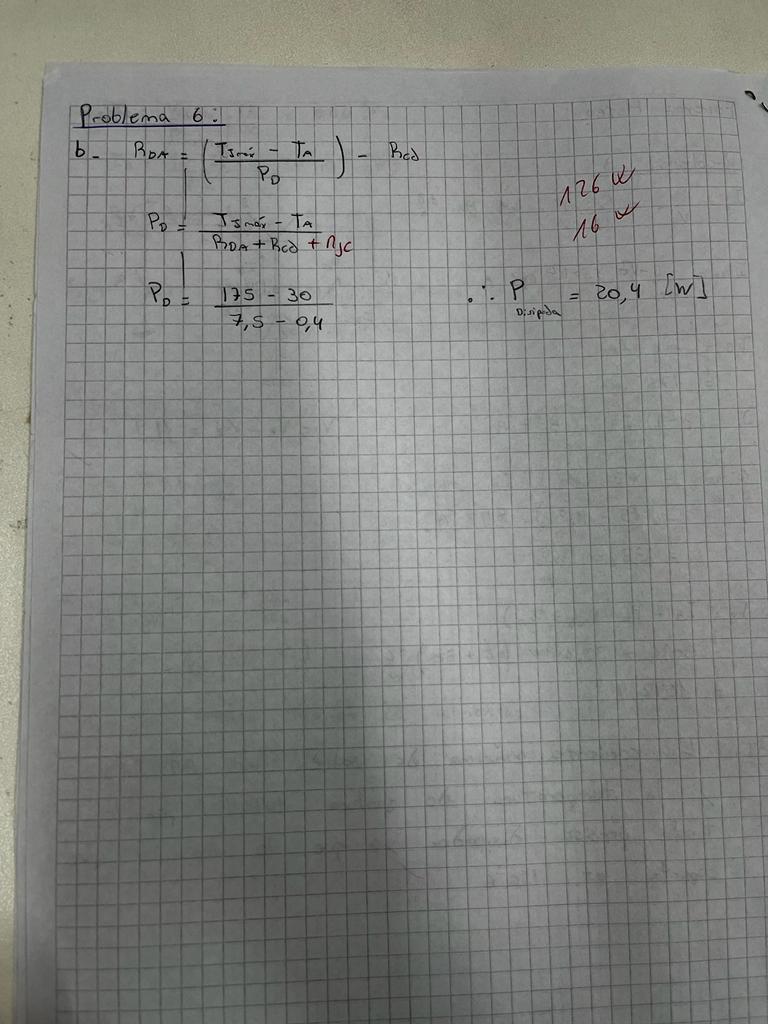 Problema 6:
b- R_DA = (T_Jmáx - T_A / P_D) - R_cd
126 W
P_D = T_Jmáx - T_A / R_DA + R_cd + R_JC
16 W
P_D = 175 - 30 / 7,5 - 0,4
∴ P_Disipada = 20,4 [W]